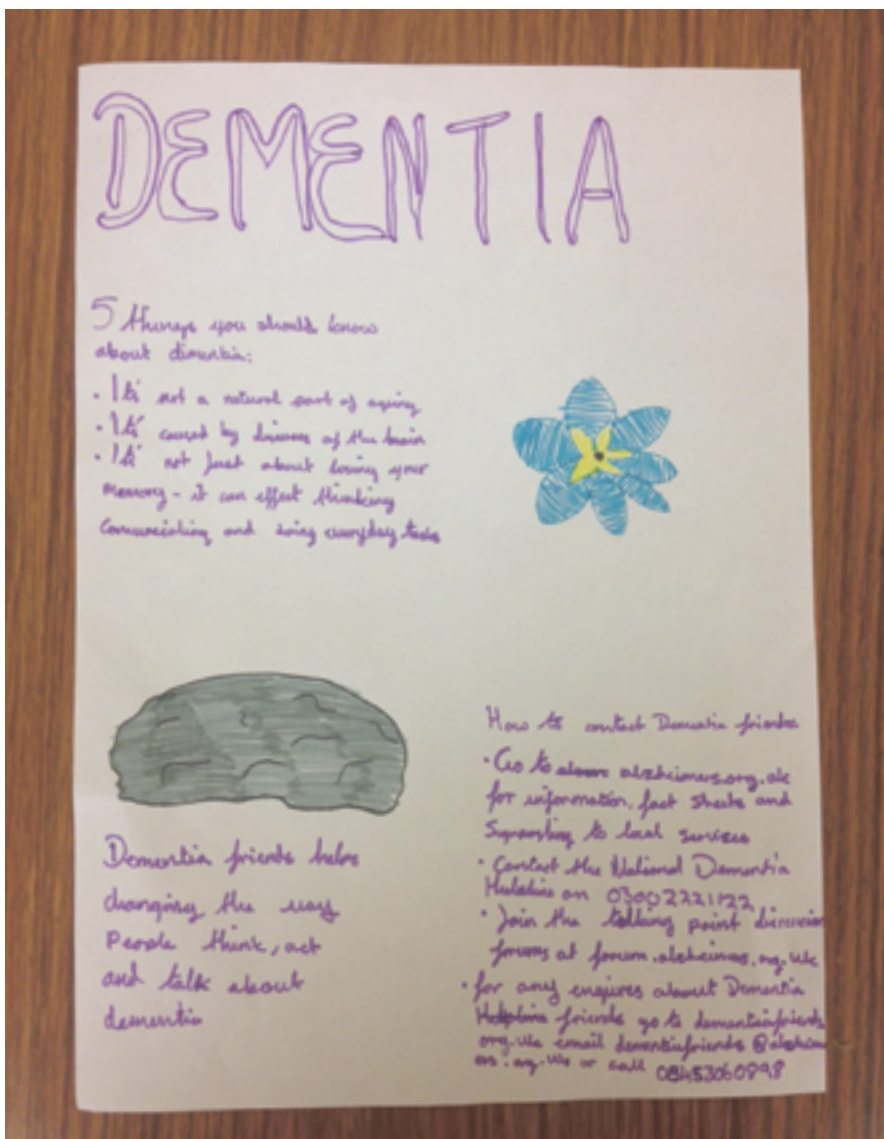 DEMENTIA
5 things you should know
about dimentia:
· It's not a natural part of ageing
· It's caused by diseases of the brain
· It's not just about losing your
memory - it can effect thinking
and doing everyday tasks
Dementia friends helps
changing the way
People think, act
and talk about
dementia
How to contact Dementia friends
· Go to alzheimers.org.uk
for information, fact sheets and
to local services
· Contact the National Dementia
Helpline on 03002221122
· Join the talking point discussion
forums at forum.alzheimers.org.uk
· for any enquires about Dementia
friends go to dementiafriends
org.uk email dementiafriends@alzheim
ers.org.uk or call 08453060898